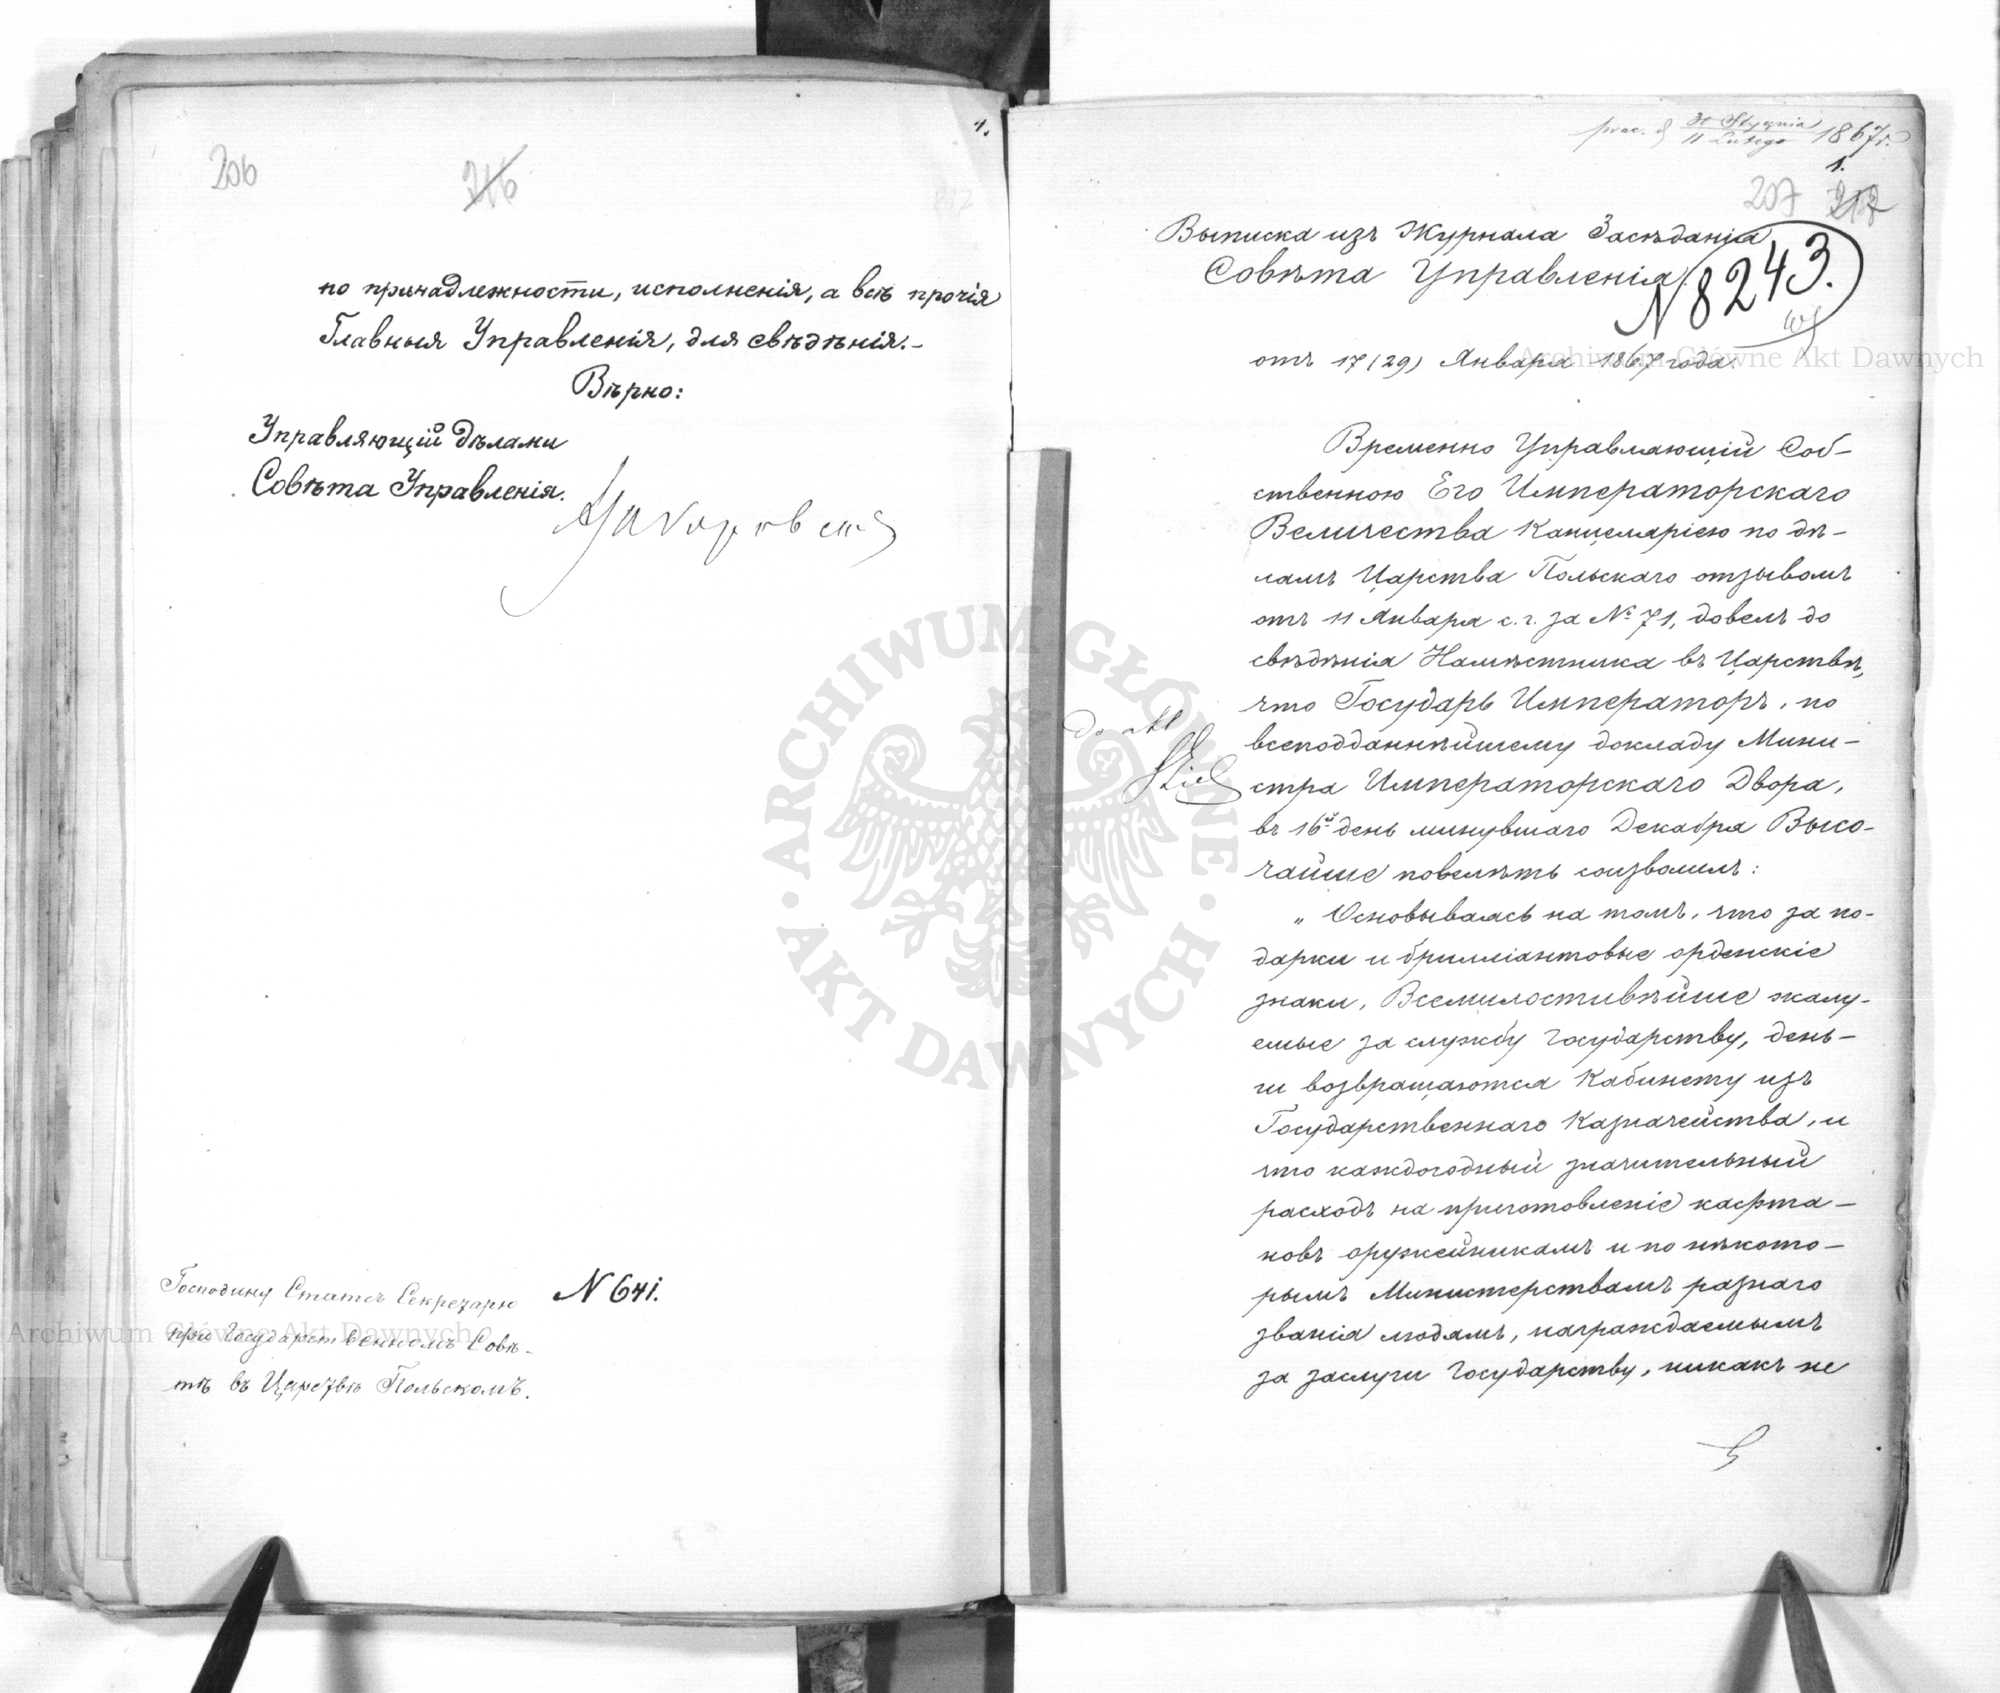 1.
206
216
по принадлежности, исполненія, а всѣ прочія
Главныя Управленія, для свѣдѣнія.-
Вѣрно:
Управляющій дѣлами
Совѣта Управленія.
Господину Статсъ Секретарю
при Государственномъ Совѣ-
тѣ въ Царствѣ Польскомъ.
N 641.
30 Stycznia
11 Lutego 1867 r.
1.
207 217
Выписка изъ Журнала Засѣданія
Совѣта Управленія
N 8243.
отъ 17 (29) Января 1867 года.
Временно Управляющій Соб-
ственною Его Императорскаго
Величества Канцеляріею по дѣ-
ламъ Царства Польскаго отзывомъ
отъ 11 Января с. г. за № 71, довелъ до
свѣдѣнія Намѣстника въ Царствѣ,
что Государь Императоръ, по
всеподданнѣйшему докладу Мини-
стра Императорскаго Двора,
въ 16й день минувшаго Декабря Высо-
чайше повелѣть соизволилъ:
„Основываясь на томъ, что за по-
дарки и брилліантовые орденскіе
знаки, Всемилостивѣйше жалу-
емые за службу Государству, день-
ги возвращаются Кабинету изъ
Государственнаго Казначейства, и
что каждогодный значительный
расходъ на приготовленіе кафта-
новъ оружейникамъ и по нѣкото-
рымъ Министерствамъ разнаго
званія людямъ, награждаемымъ
за заслуги Государству, никакъ не
do akt
ARCHIWUM GŁÓWNE · AKT DAWNYCH ·
Archiwum Główne Akt Dawnych
Archiwum Główne Akt Dawnych